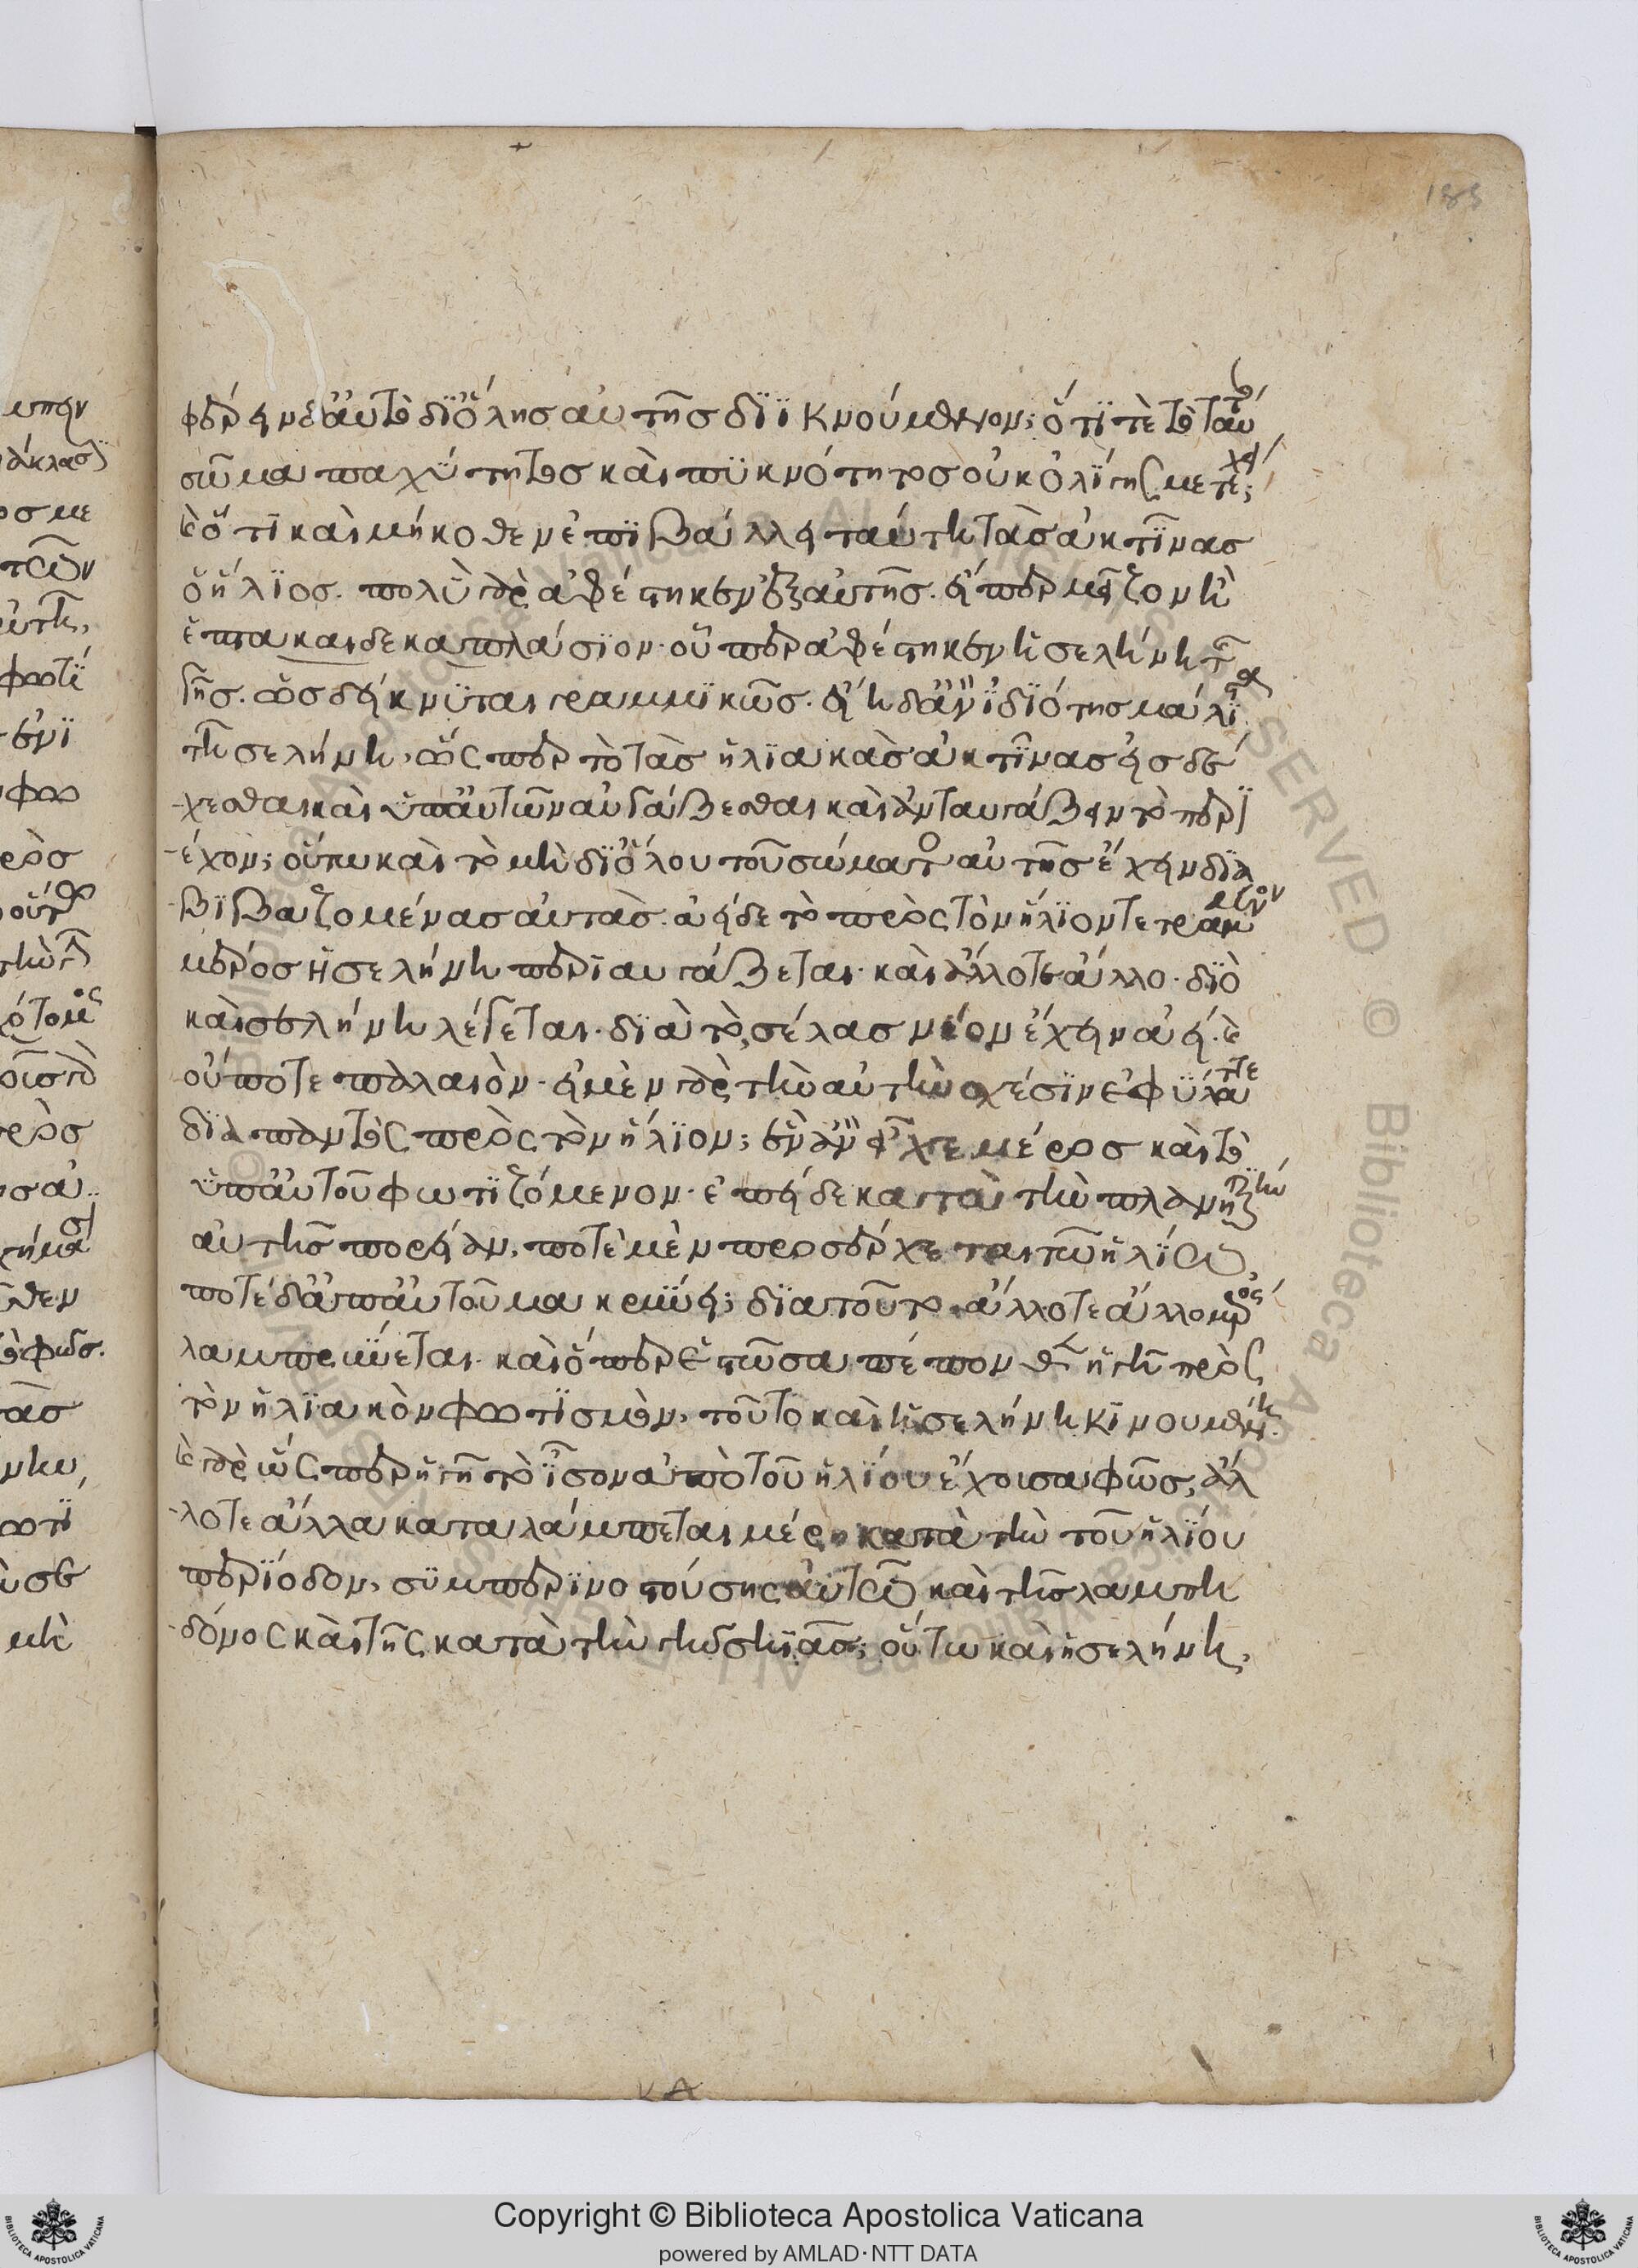 185
φέρειν ἑαυτὸ δι' ὅλης αὐτῆς διϊκνούμενον; ὅτί τε τὸ ταύτ
σῶμα παχύτητος καὶ πυκνότητος οὐκ ὀλίγης μετέχει;
καὶ ὅτι καὶ μήκοθεν ἐπιβάλλει ταύτη τὰς ἀκτῖνας
ὁ ἥλιος. πολὺ γὰρ ἀφέστηκεν ἐξ αὐτῆς. εἴπερ μεῖζον ἢ
ἑπτακαιδεκαπλάσιον. οὗπερ ἀφέστηκεν ἡ σελήνη τῆς
γῆς. ὡς δείκνυται γραμμικῶς. εἴη δ' ἂν ἰδιότης μάλιστα
τῆ σελήνη, ὥσπερ τὸ τὰς ἡλιακὰς ἀκτῖνας εἰσδέ
χεσθαι καὶ ὑπ' αὐτῶν αὐγάζεσθαι καὶ ἀνταυγάζειν τὸ περι
έχον; οὕτω καὶ τὸ μὴ δι' ὅλου τοῦ σώματος αὐτῆς ἔχειν δια
βιβαζομένας αὐτάς. ἀεὶ δὲ τὸ πρὸς τὸν ἥλιον τετραμμένον
μέρος ἡ σελήνη περιαυγάζεται. καὶ ἄλλοτε ἄλλο. διὸ
καὶ σελήνη λέγεται. διὰ τὸ, σέλας νέον ἔχειν ἀεί. καὶ
οὔποτε παλαιόν. εἰ μὲν γὰρ τὴν αὐτὴν σχέσιν ἐφύλαττε
διαπαντὸς πρὸς τὸν ἥλιον; ἓν ἂν εἶχε μέρος καὶ τὸ
ὑπ' αὐτοῦ φωτιζόμενον. ἐπεὶ δὲ κατὰ τὴν πλανητικὴν
αὐτῆς πορείαν, ποτὲ μὲν προσέρχεται τῶ ἡλίω,
ποτὲ δ' ἀπ' αὐτοῦ μακρύνει; διὰ τοῦτο ἄλλοτε ἄλλο μέρος
λαμπρύνεται. καὶ ὅπερ ἑστῶσα πέπονθεν ἡ γῆ πρὸς
τὸν ἡλιακὸν φωτισμὸν, τοῦτο καὶ ἡ σελήνη κινουμένη.
καὶ γὰρ ὥσπερ ἡ γῆ τὸ ἴσον ἀπὸ τοῦ ἡλίου ἔχουσα φῶς, ἄλ
λοτε ἄλλα καταλάμπεται μέρη κατὰ τὴν τοῦ ἡλίου
περίοδον, συμπερινοστούσης αὐτῶ καὶ τῆς λαμπη
δόνος καὶ τῆς κατὰ τὴν γῆν σκιᾶς; οὕτω καὶ ἡ σελήνη,
κδ
Copyright © Biblioteca Apostolica Vaticana
powered by AMLAD·NTT DATA